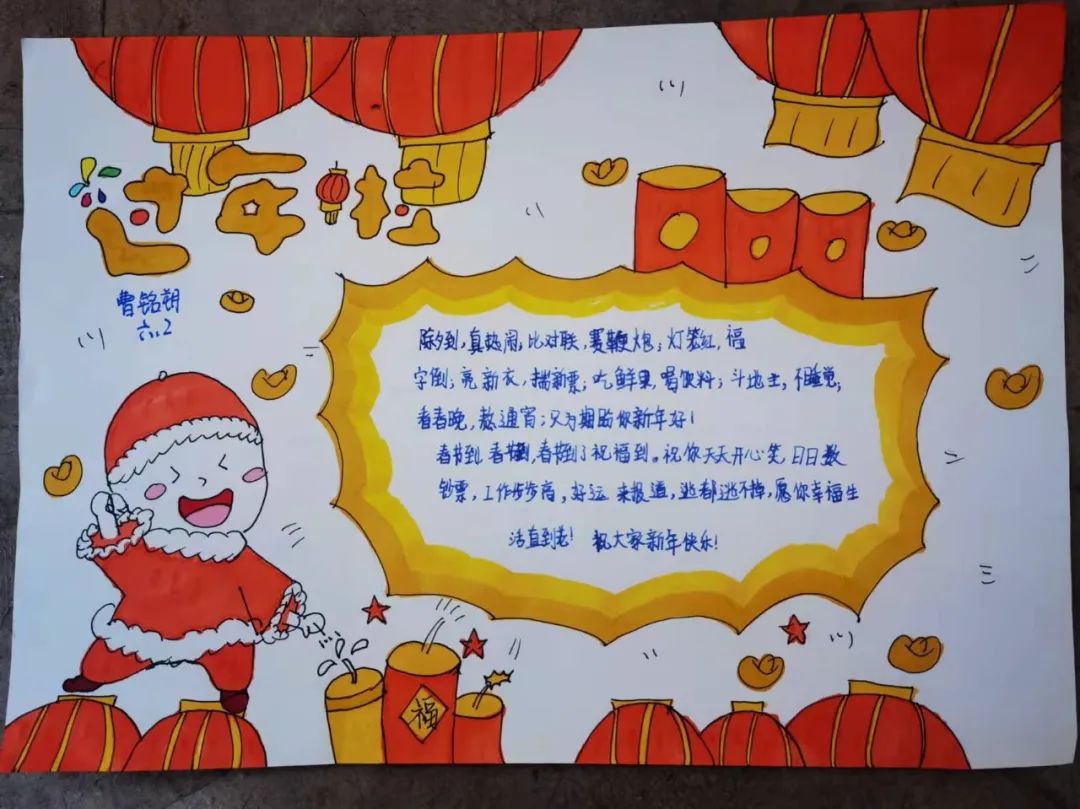 过年啦
曹铭朔
六.2
除夕到,真热闹;比对联,赛鞭炮;灯笼红,福
字倒;亮新衣,揣新票;吃鲜果,喝饮料;斗地主,不睡觉;
看春晚,熬通宵;只为期盼你新年好!
春节到,春节到,春节到了祝福到。祝你天天开心笑,日日数
钞票,工作步步高,好运来报道,逃都逃不掉,愿你幸福生
活直到老! 祝大家新年快乐!
福